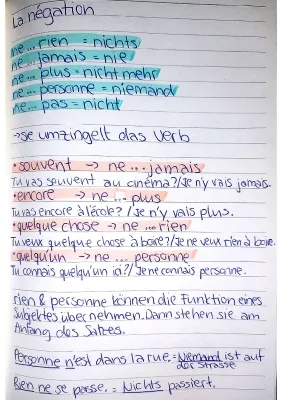 La négation
ne... rien = nichts
ne... jamais = nie
ne... plus = nicht mehr
ne... personne = niemand
ne... pas = nicht
→ se umzingelt das Verb
• souvent → ne ... jamais
Tu vas souvent au cinéma? / Je n'y vais jamais.
• encore → ne ... plus
Tu vas encore à l'école? / Je n'y vais plus.
• quelque chose → ne ... rien
Tu veux quelque chose à boire? / Je ne veux rien à boire.
• quelqu'un → ne ... personne
Tu connais quelqu'un ici? / Je ne connais personne.
rien & personne können die Funktion eines
Subjektes übernehmen. Dann stehen sie am
Anfang des Satzes.
Personne n'est dans la rue. = Niemand ist auf
der Strasse
Rien ne se passe. = Nichts passiert.